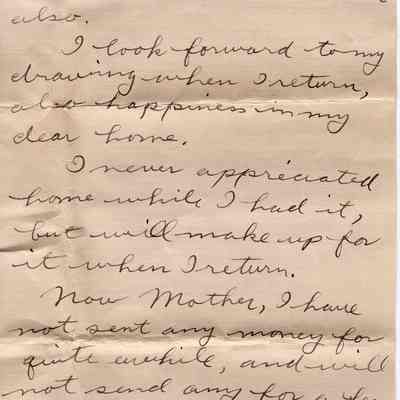 also.
I look forward to my
drawing when I return,
also happiness in my
dear home.
I never appreciated
home while I had it,
but will make up for
it when I return.
Now Mother, I have
not sent any money for
quite awhile, and will
not send any for a